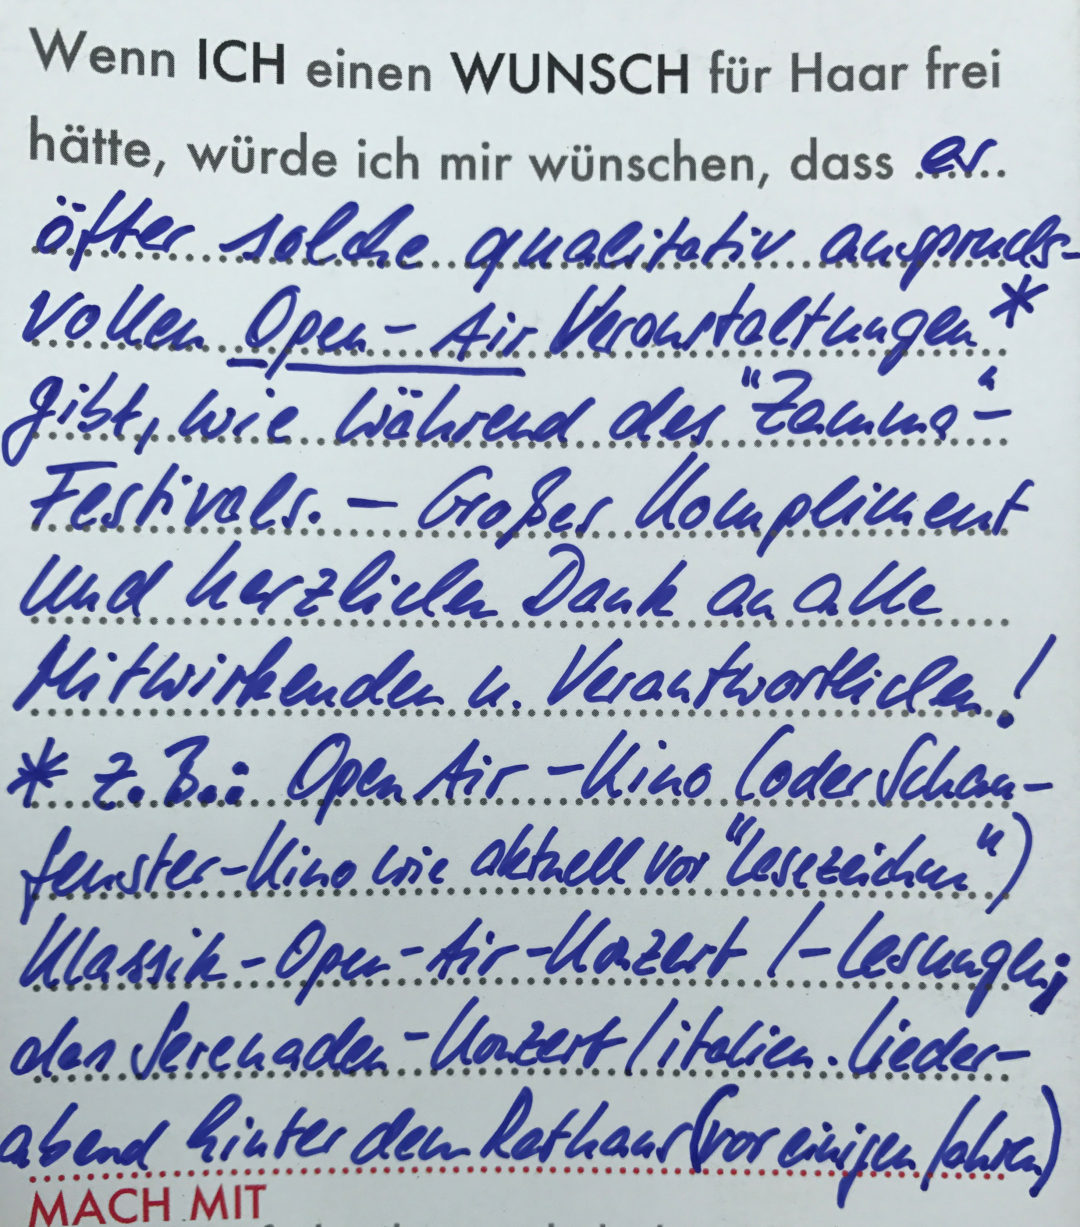 Wenn ICH einen WUNSCH für Haar frei
hätte, würde ich mir wünschen, dass es
öfter solche qualitativ anspruchs-
vollen Open-Air Veranstaltungen*
gibt, wie während des "Zamma"-
Festivals. – Großes Kompliment
und herzlichen Dank an alle
Mitwirkenden u. Verantwortlichen!
* z.B.: Open Air-Kino (oder Schau-
fenster-Kino wie aktuell vor "Lesezeichen")
Klassik-Open-Air-Konzert /-Lesungen;
das Serenaden-Konzert / italien. Lieder-
abend hinter dem Rathaus (vor einigen Jahren)
MACH MIT